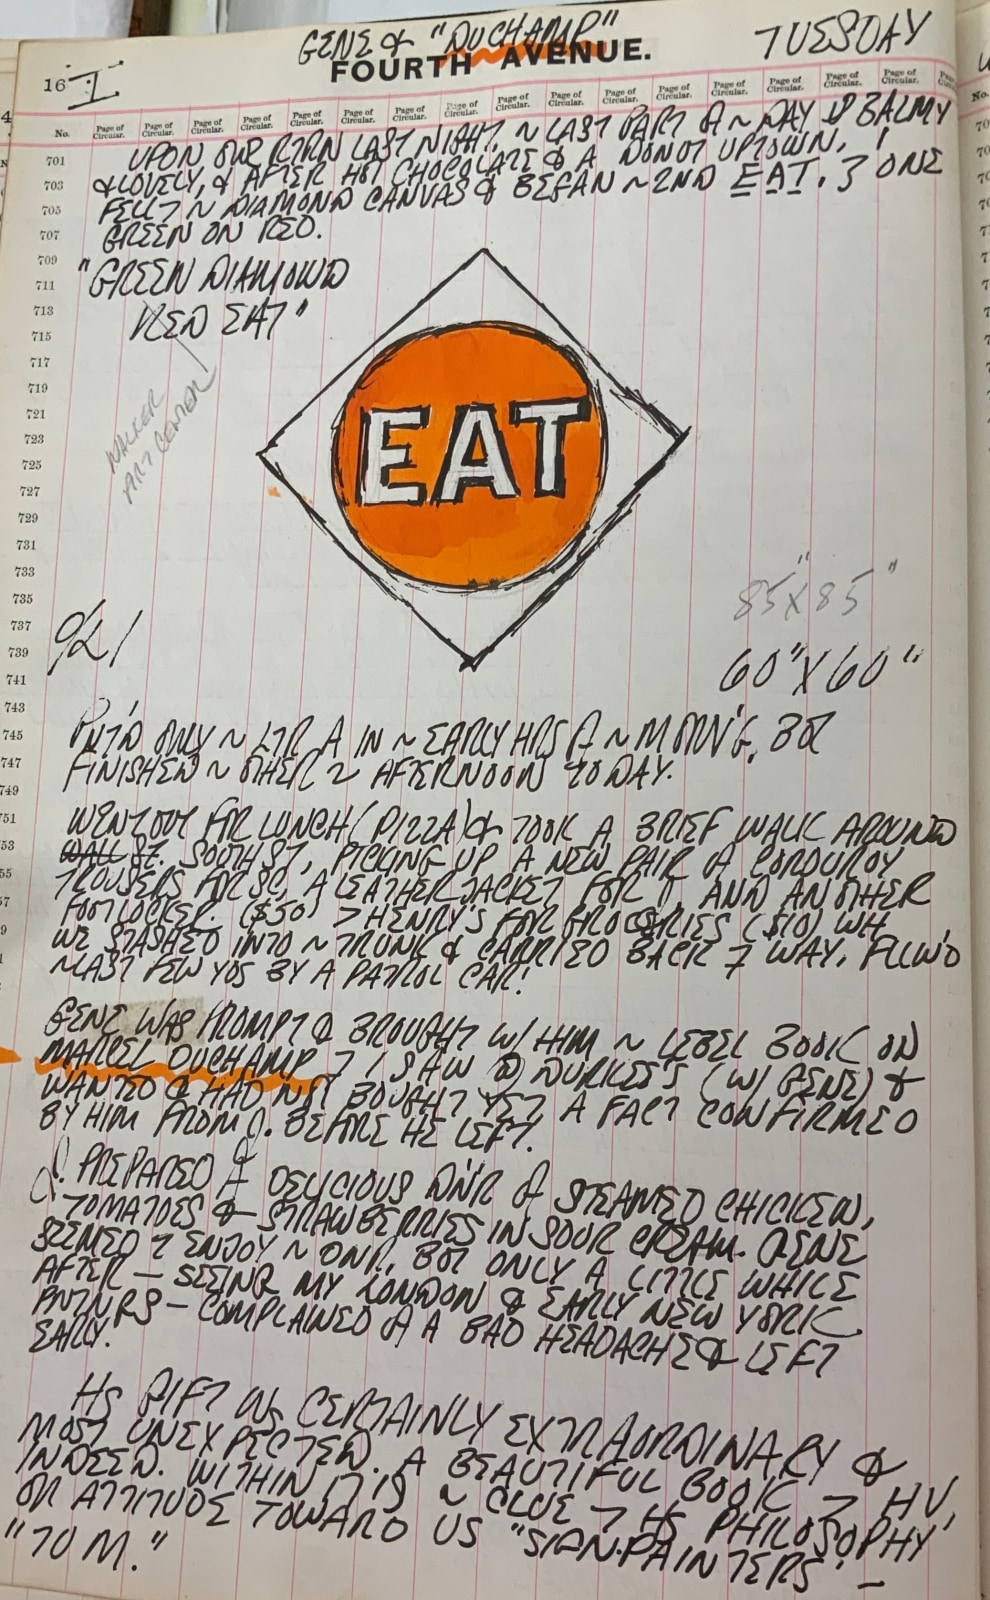 GENE & "DUCHAMP" TUESDAY
FOURTH AVENUE.
16 I
No. Page of Circular. Page of Circular. Page of Circular. Page of Circular. Page of Circular. Page of Circular. Page of Circular. Page of Circular. Page of Circular. Page of Circular. Page of Circular. Page of Circular. Page of Circular. Page of Circular. Page of Circular. Page of Circular.
701 UPON OUR RTRN LAST NIGHT, ~ LAST PART OF ~ DAY BALMY
703 & LOVELY, & AFTER HOT CHOCOLATE & A DONUT UPTOWN, I
705 FELL 7 ~ DIAMOND CANVAS & BEGAN ~ 2ND EAT. ONE
707 GREEN ON RED.
709 "GREEN DIAMOND
711
713 RED EAT"
715
717
719
721 WALKER
723 ART CENTER
725 EAT
727
729
731
733
735 85" X 85"
737
739 60" X 60"
741
743
745 PNT'D ONLY ~ LTR A IN ~ EARLY HRS OF ~ MORN'G, BUT
747 FINISHED ~ OTHER 2 AFTERNOON TODAY.
749
751 WENT OUT FOR LUNCH (PIZZA) & TOOK A BRIEF WALK AROUND
753 WALL ST. SOUTH ST, PICKING UP A NEW PAIR OF CORDUROY
755 TROUSERS FOR A LEATHER JACKET FOR J, AND ANOTHER
757 FOOTLOCKER. ($50) > HENRY'S FOR GROCERIES ($10) WH
WE STASHED INTO ~ TRUNK & CARRIED BACK 7 WAY, FLLW'D
~ LAST FEW YDS BY A PATROL CAR!
GENE WAS PROMPT & BROUGHT W/ HIM ~ LEBEL BOOK ON
MARCEL DUCHAMP 7 I SAW @ (W/ GENE) &
WANTED & HAD NOT BOUGHT YET A FACT CONFIRMED
BY HIM FROM J. BEFORE HE LEFT.
J. PREPARED A DELICIOUS DN'R OF STEAMED CHICKEN,
TOMATOES & STRAWBERRIES IN SOUR CREAM. GENE
SEEMED 7 ENJOY ~ DNR, BUT ONLY A LITTLE WHILE
AFTER – SEEING MY LONDON & EARLY NEW YORK
PNTNGS – COMPLAINED OF A BAD HEADACHE & LEFT
EARLY.
HS GIFT WS CERTAINLY EXTRAORDINARY &
MOST UNEXPECTED. A BEAUTIFUL BOOK > HV,
INDEED. WITHIN IT IS ~ CLUE > HS PHILOSOPHY
OR ATTITUDE TOWARD US "SIGN-PAINTERS" –
"TO M."